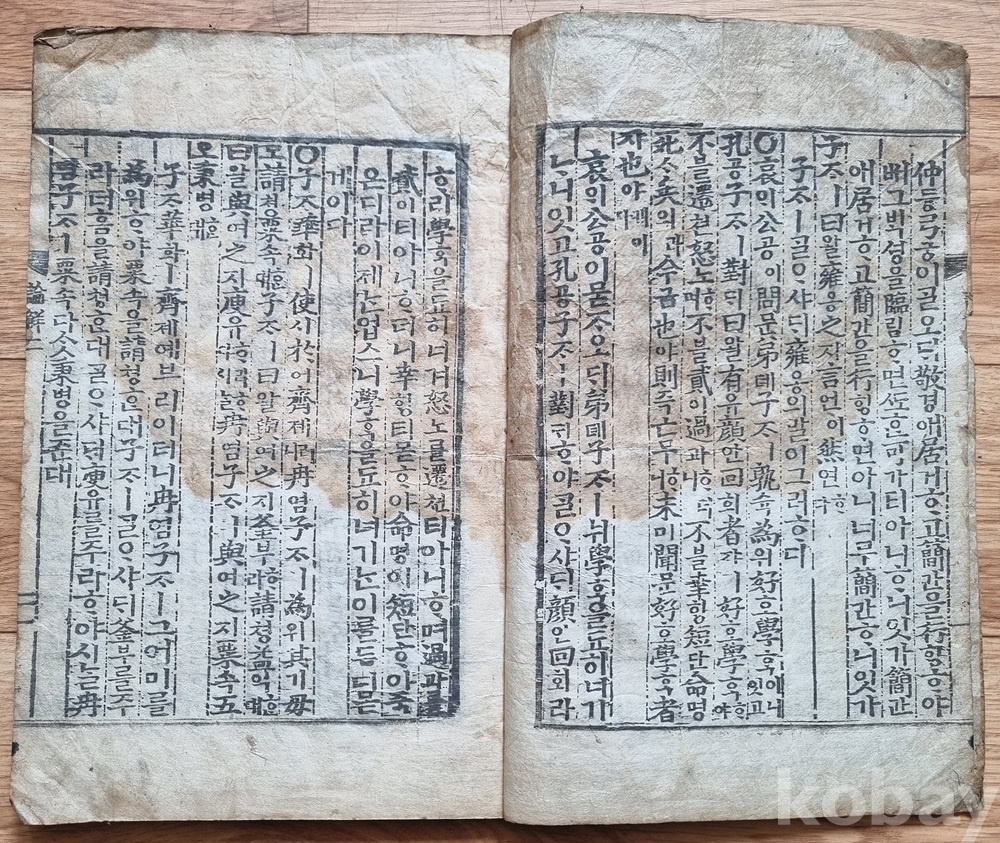 仲듕弓궁이ᄀᆞᆯ오ᄃᆡ敬경애居거ᄒᆞ고簡간을行ᄒᆡᆼᄒᆞ야
ᄡᅥ그ᄇᆡᆨ셩을臨림ᄒᆞ면ᄯᅩᄒᆞᆫ可가티아니ᄒᆞ니잇가簡간
애居거ᄒᆞ고簡간을行ᄒᆡᆼᄒᆞ면아니너무簡간ᄒᆞ니잇가
子ᄌᆞㅣ曰왈雍옹之지言언이然연ᄒᆞ다
子ᄌᆞㅣᄀᆞᆯᄋᆞ샤ᄃᆡ雍옹의말이그러ᄒᆞ다
○哀ᄋᆡ公공이問문弟뎨子ᄌᆞㅣ孰슉爲위好호學ᄒᆞᆨ이니잇고
孔공子ᄌᆞㅣ對ᄃᆡ曰왈有유顔안回회者쟈ㅣ好호學ᄒᆞᆨᄒᆞ야
不블遷쳔怒노ᄒᆞ며不블貳이過과ᄒᆞ더니不블幸ᄒᆡᆼ短단命명
死ᄉᆞ矣의라今금也야則즉亡무ᄒᆞ니未미聞문好호學ᄒᆞᆨ者
쟈也야케이다
哀ᄋᆡ公공이묻ᄌᆞ오ᄃᆡ弟뎨子ᄌᆞㅣ뉘學ᄒᆞᆨ을됴히너기
ᄂᆞ니잇고孔공子ᄌᆞㅣ對ᄃᆡᄒᆞ야ᄀᆞᆯᄋᆞ샤ᄃᆡ顔안回회라
ᄒᆞ리學ᄒᆞᆨ을됴히너겨怒노를遷쳔티아니ᄒᆞ며過과를
貳이티아니ᄒᆞ더니幸ᄒᆡᆼ티몯ᄒᆞ야命명이短단ᄒᆞ야죽
은디라이제ᄂᆞᆫ업스니學ᄒᆞᆨ을됴히너기ᄂᆞᆫ이를듣디몯
게이다
○子ᄌᆞ華화ㅣ使시於어齊졔러니冉염子ᄌᆞㅣ爲위其기母
모請쳥粟속ᄒᆞᆫ대子ᄌᆞㅣ曰왈與여之지釜부ᄒᆞ라請쳥益익ᄒᆞᆫ대
曰왈與여之지庾유ᄒᆞ라ᄒᆞ야시ᄂᆞᆯ冉염子ᄌᆞㅣ與여之지粟속五
오秉병ᄒᆞᆫ대
子ᄌᆞ華화ㅣ齊졔예브리이더니冉염子ᄌᆞㅣ그어미를
爲위ᄒᆞ야粟속을請쳥ᄒᆞᆫ대子ᄌᆞㅣᄀᆞᆯᄋᆞ샤ᄃᆡ釜부를주
라더ᄒᆞᆷ을請쳥ᄒᆞᆫ대ᄀᆞᆯᄋᆞ샤ᄃᆡ庾유를주라ᄒᆞ야시ᄂᆞᆯ冉
염子ᄌᆞㅣ粟속다ᄉᆞᆺ秉병을준대
論解二
kobay